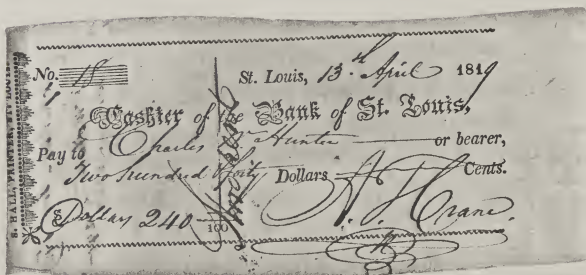 S. HALL, PRINTER, ST. LOUIS.
No. 18 St. Louis, 13th April 1819
Cashier of the Bank of St. Louis,
Pay to Charles W Hunter or bearer,
Two hundred & forty Dollars Cents.
Dollars 240 100 A. S. Crane.